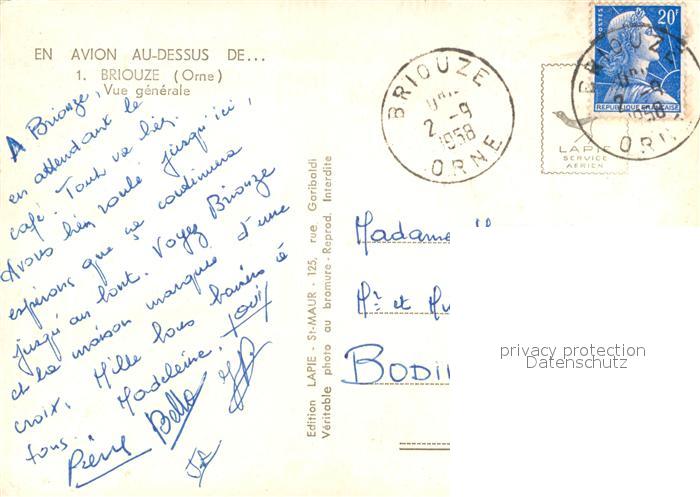 EN AVION AU-DESSUS DE...
1. BRIOUZE (Orne)
Vue générale
A Briouze,
en attendant le
café. Tout va bien.
Avons bien roulé jusqu'ici,
espérons que ça continuera
jusqu'au bout. Voyez Briouze
et la maison marquée d'une
croix. Mille bons baisers à
tous. Madeleine.
Pierre
Edition LAPIE - St-MAUR - 125, rue Garibaldi
Véritable photo au bromure - Reprod. Interdite
BRIOUZE
2 -9
1958
ORNE
POSTES
20F
REPUBLIQUE FRANÇAISE
BRIOUZE
1958
ORNE
LAPIE
SERVICE
AERIEN
Madame
Mr et
BODI
privacy protection
Datenschutz